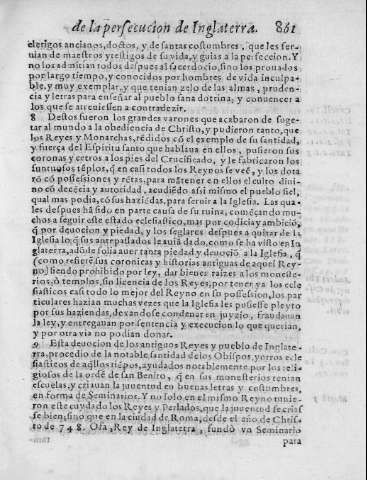 de la persecucion de Inglaterra. 861
clerigos ancianos, doctos, y de santas costumbres, que les ser-
uian de maestros y testigos de su vida, y guias a la perfeccion. Y
no los admitian todos despues al sacerdocio, sino los prouados
por largo tiempo, y conocidos por hombres de vida inculpa-
ble, y muy exemplar, y que tenian zelo de las almas, pruden-
cia y letras para enseñar al pueblo sana dotrina, y conuencer a
los que se atreuiessen a contradezir.
8 Destos fueron los grandes varones que acabaron de suge-
tar al mundo a la obediencia de Christo, y pudieron tanto, que
los Reyes y Monarchas, rēdidos cō el exemplo de su santidad,
y fuerça del Espiritu santo que hablaua en ellos, pusieron sus
coronas y cetros a los pies del Crucificado, y le fabricaron los
suntuosos tēplos, q̄ en casi todos los Reynos se veē, y los dota
rō cō possessiones y rētas, para mātener en ellos el culto diui-
no cō decēcia y autoridad, acudiēdo assi mismo el pueblo fiel,
qual mas podia, cō sus haziēdas, para seruir a la Iglesia. Las qua
les despues hā sido en parte causa de su ruina, começando mu-
chos a seguir este estado eclesiastico, mas por codicia y ambiciō,
q̄ por deuocion y piedad, y los seglares despues a quitar de la
Iglesia lo q̄ sus antepassados le auiā dado, como se ha visto en In
glaterra, adōde solia auer tanta piedad y deuociō a la Iglesia, q̄
[como refierē sus coronicas y historias antiguas de aquel Rey-
no] siendo prohibido por ley, dar bienes raizes a los moneste-
rios, ò templos, sin licencia de los Reyes, por tener ya los ecle
siasticos casi todo lo mejor del Reyno en su possession, los par
ticulares hazian muchas vezes que la Iglesia les pusiesse pleyto
por sus haziendas, dexandose condenar en juyzio, fraudauan
la ley, y entregauan por sentencia y execucion lo que querian,
y por otra via no podian donar.
9 Esta deuocion de los antiguos Reyes y pueblo de Inglate-
rra, procedio de la notable santidad de los Obispos, y otros ecle
siasticos de aq̄llos tiēpos, ayudados notablemente por los reli-
giosos de la ordē de san Benito, q̄ en sus monesterios tenian
escuelas, y criauan la juuentud en buenas letras y costumbres,
en forma de Seminarios. Y no solo en el mismo Reyno tuuie-
ron este cuydado los Reyes y Perlados, que la juuentud se crias
se bien, sino que en la ciudad de Roma, desde el año de Chris-
to de 748. Ofa, Rey de Inglaterra, fundò vn Seminario
para